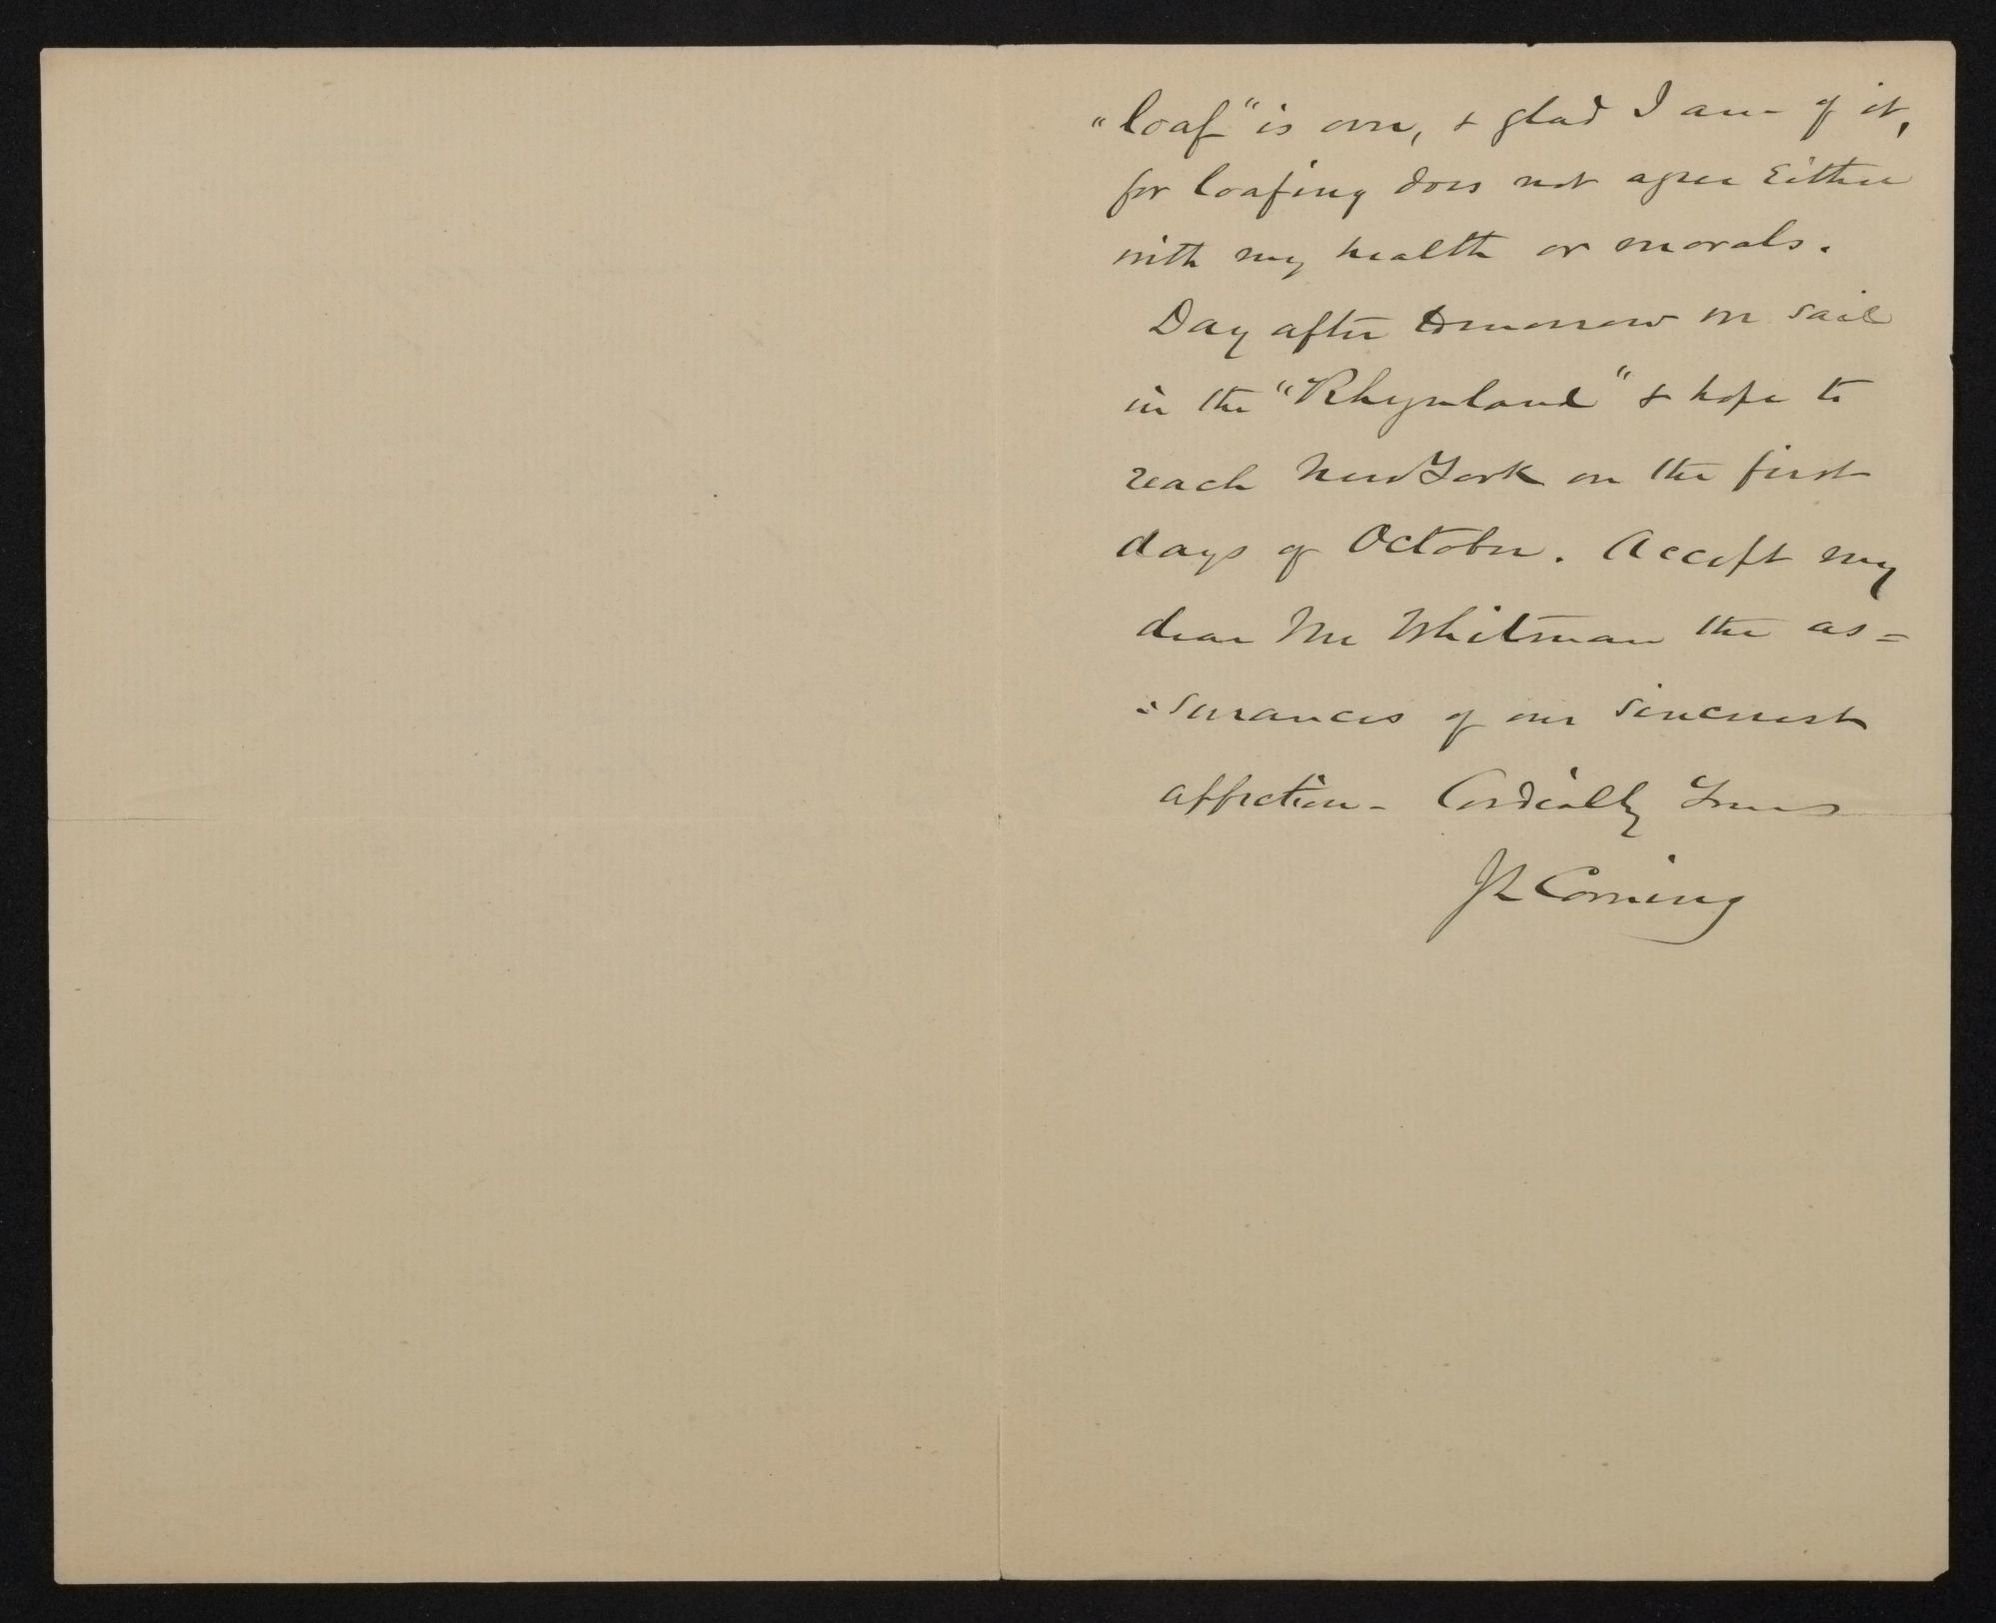 "loaf" is over, & glad I am of it,
for loafing does not agree Either
with my health or morals.
Day after tomorrow we sail
in the "Rhynland" & hope to
reach New York on the first
days of October. Accept my
dear Mr Whitman the as=
=surances of our sincerest
affection - Cordially Yours
JL Corning